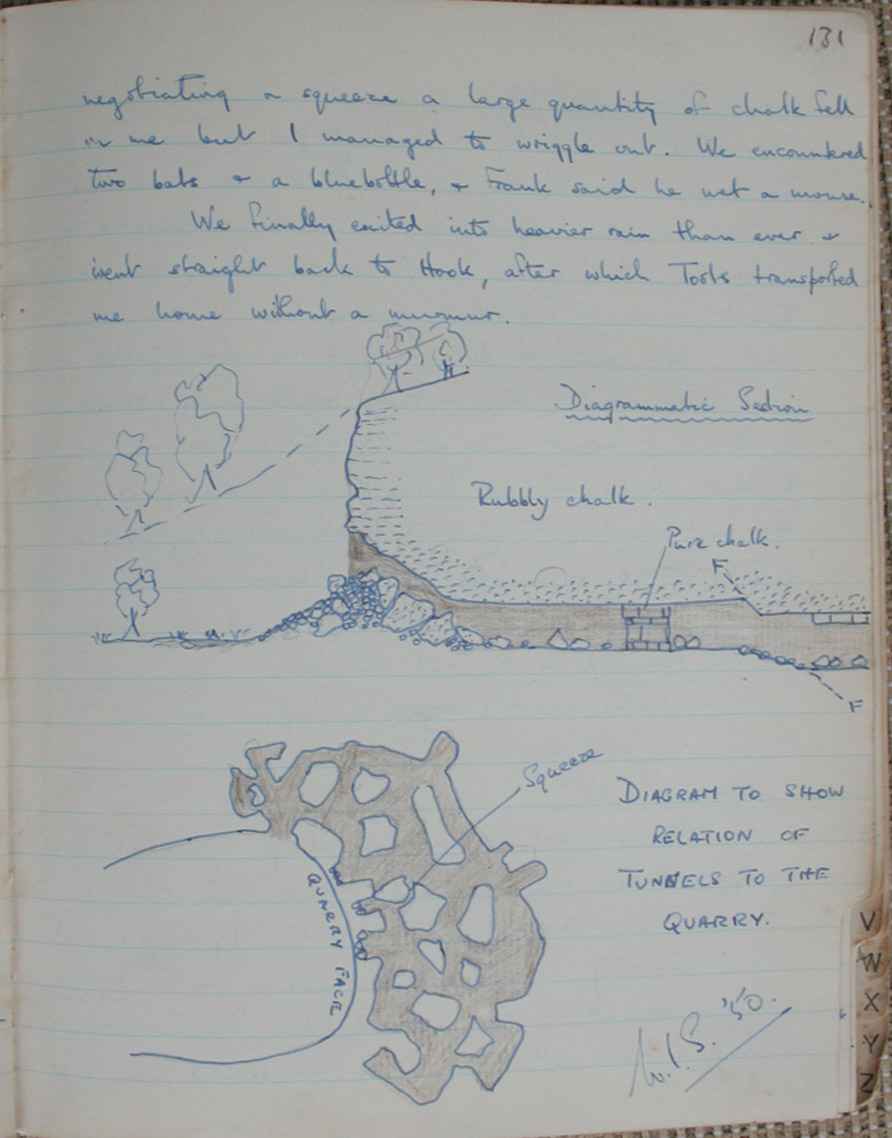 131
negotiating a squeeze a large quantity of chalk fell
on me but I managed to wriggle out. We encountered
two bats & a bluebottle, & Frank said he met a mouse.
We finally exited into heavier rain than ever &
went straight back to Hook, after which Toots transported
me home without a murmur.
Diagrammatic Section
Rubbly chalk.
Pure chalk.
F
F
Squeeze
DIAGRAM TO SHOW
RELATION OF
TUNNELS TO THE
QUARRY.
QUARRY FACE
'50.
V
W
X
Y
Z